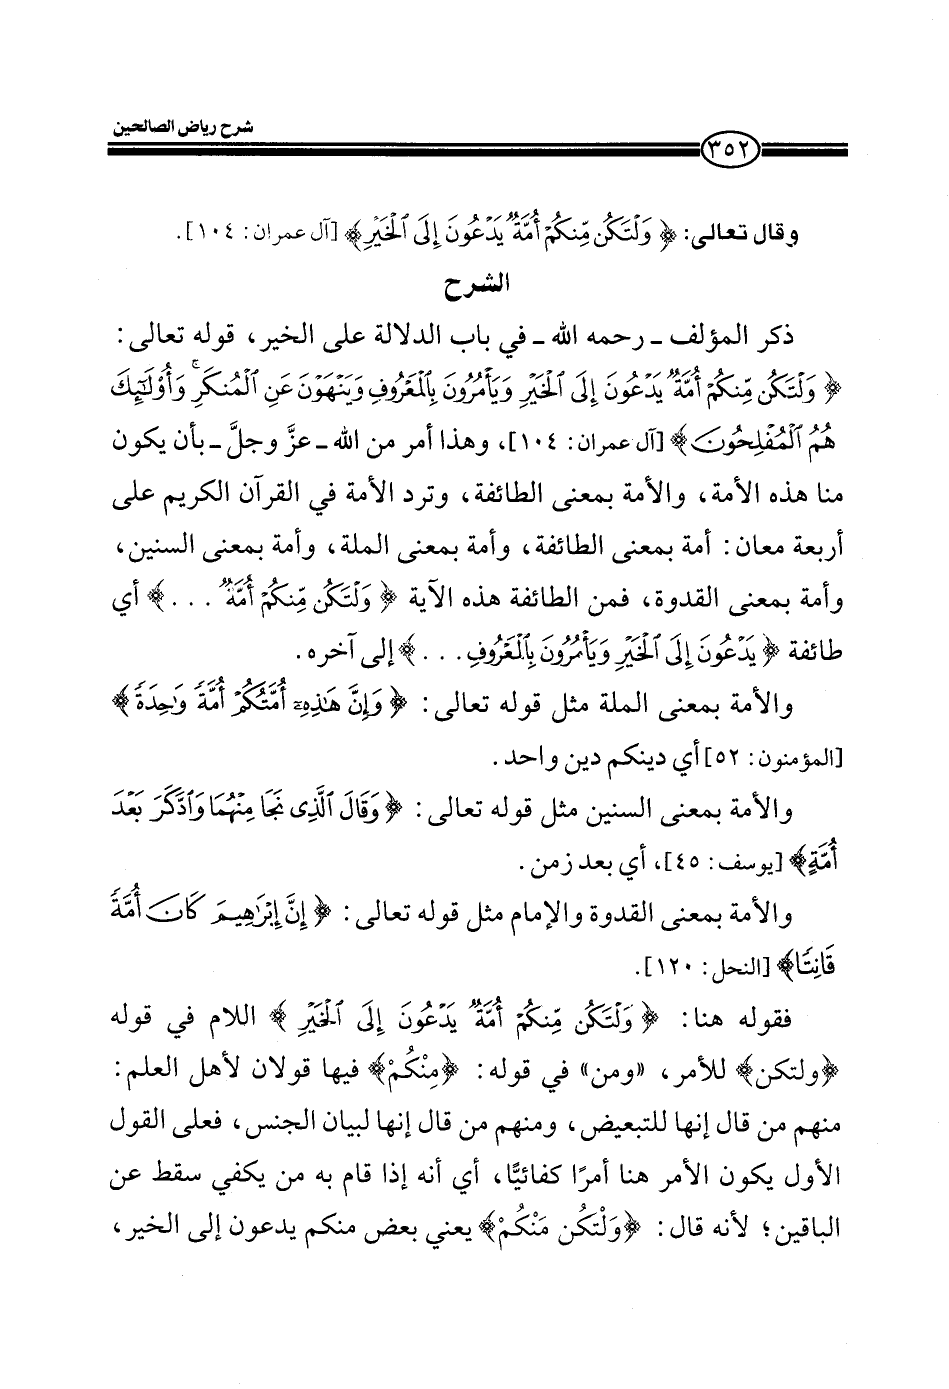 شرح رياض الصالحين
٣٥٢
وقال تعالى: ﴿ وَلْتَكُن مِّنكُمْ أُمَّةٌ يَدْعُونَ إِلَى ٱلْخَيْرِ﴾ [آل عمران: ١٠٤].
الشرح
ذكر المؤلف ـ رحمه الله ـ في باب الدلالة على الخير، قوله تعالى:
﴿ وَلْتَكُن مِّنكُمْ أُمَّةٌ يَدْعُونَ إِلَى ٱلْخَيْرِ وَيَأْمُرُونَ بِٱلْمَعْرُوفِ وَيَنْهَوْنَ عَنِ ٱلْمُنكَرِ ۚ وَأُوْلَٰٓئِكَ
هُمُ ٱلْمُفْلِحُونَ﴾ [آل عمران: ١٠٤]، وهذا أمر من الله ـ عزَّ وجلَّ ـ بأن يكون
منا هذه الأمة، والأمة بمعنى الطائفة، وترد الأمة في القرآن الكريم على
أربعة معان: أمة بمعنى الطائفة، وأمة بمعنى الملة، وأمة بمعنى السنين،
وأمة بمعنى القدوة، فمن الطائفة هذه الآية ﴿ وَلْتَكُن مِّنكُمْ أُمَّةٌ . . .﴾ أي
طائفة ﴿ يَدْعُونَ إِلَى ٱلْخَيْرِ وَيَأْمُرُونَ بِٱلْمَعْرُوفِ. . .﴾ إلى آخره.
والأمة بمعنى الملة مثل قوله تعالى: ﴿ وَإِنَّ هَٰذِهِۦٓ أُمَّتُكُمْ أُمَّةً وَٰحِدَةً﴾
[المؤمنون: ٥٢] أي دينكم دين واحد.
والأمة بمعنى السنين مثل قوله تعالى: ﴿وَقَالَ ٱلَّذِى نَجَا مِنْهُمَا وَٱدَّكَرَ بَعْدَ
أُمَّةٍ﴾ [يوسف: ٤٥]، أي بعد زمن.
والأمة بمعنى القدوة والإمام مثل قوله تعالى: ﴿ إِنَّ إِبْرَٰهِيمَ كَانَ أُمَّةً
قَانِتًا﴾ [النحل: ١٢٠].
فقوله هنا: ﴿ وَلْتَكُن مِّنكُمْ أُمَّةٌ يَدْعُونَ إِلَى ٱلْخَيْرِ ﴾ اللام في قوله
﴿ولتكن﴾ للأمر، «ومن» في قوله: ﴿مِنْكُمْ﴾ فيها قولان لأهل العلم:
منهم من قال إنها للتبعيض، ومنهم من قال إنها لبيان الجنس، فعلى القول
الأول يكون الأمر هنا أمرًا كفائيًّا، أي أنه إذا قام به من يكفي سقط عن
الباقين؛ لأنه قال: ﴿وَلْتَكُن مَنْكُمْ﴾ يعني بعض منكم يدعون إلى الخير،